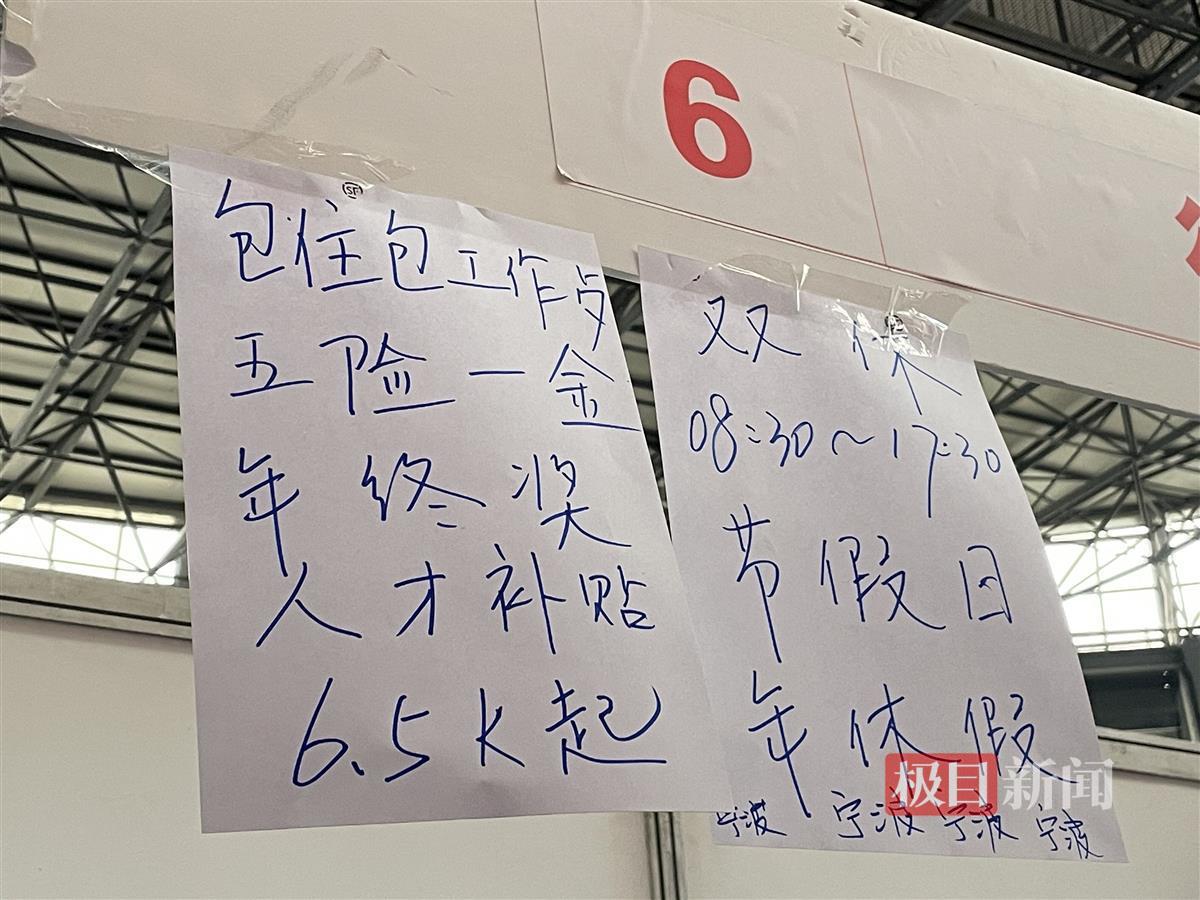 6
SF
包住包工作歺
五险一金
年终奖
人才补贴
6.5K起
双休
08:30~17:30
节假日
年休假
宁波 宁波 宁波 宁波
极目新闻